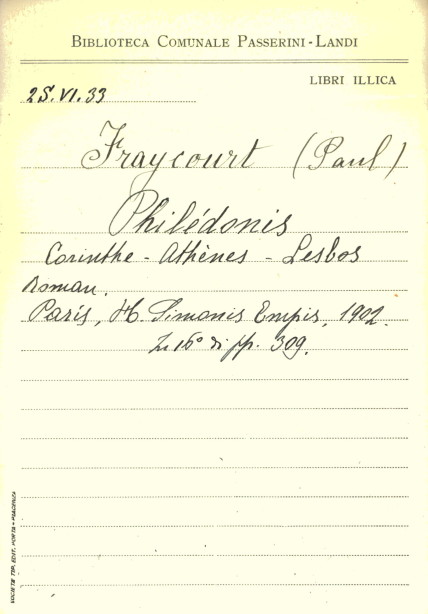 BIBLIOTECA COMUNALE PASSERINI-LANDI
LIBRI ILLICA
25.VI.33
Fraycourt (Paul)
Philédonis
Corinthe - Athènes - Lesbos
Roman.
Paris, H. Simonis Empis, 1902.
In 16° di pp. 309.